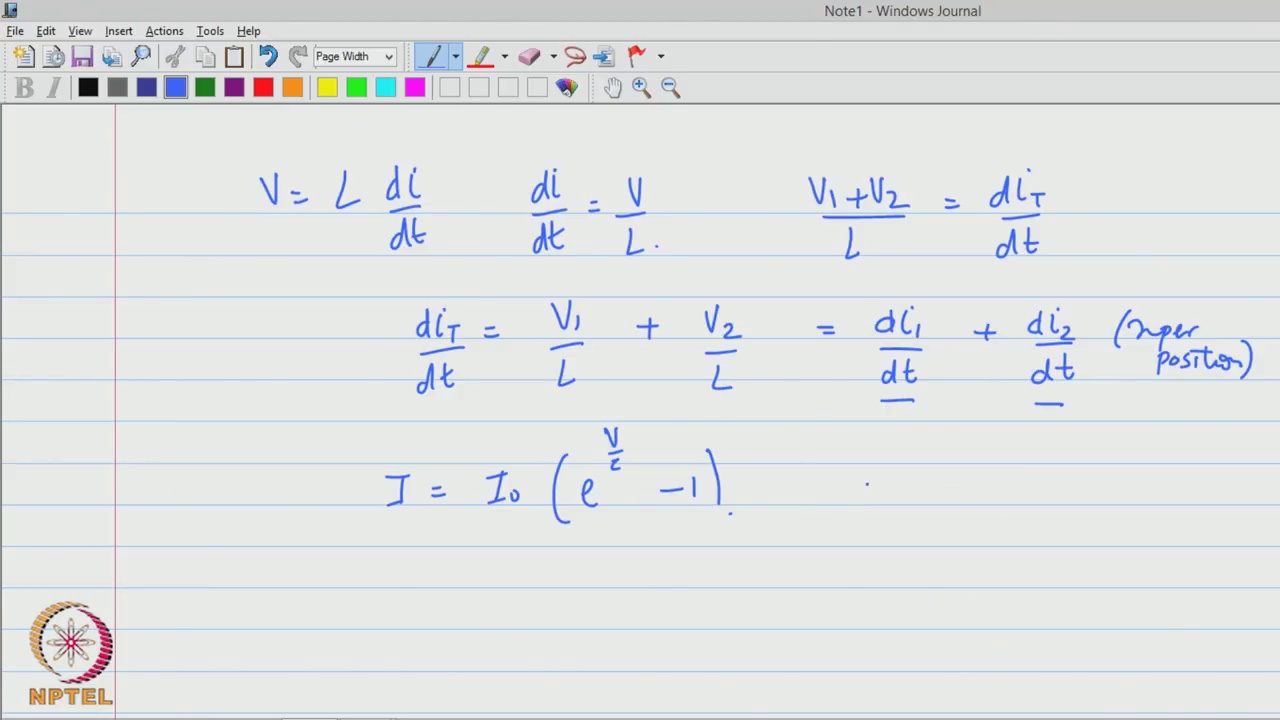 Note1 - Windows Journal
File Edit View Insert Actions Tools Help
Page Width
B I
V = L di/dt di/dt = V/L . (V1 + V2)/L = diT/dt
diT/dt = V1/L + V2/L = di1/dt + di2/dt (super
position)
I = I0 (e^{V/c} - 1).
NPTEL